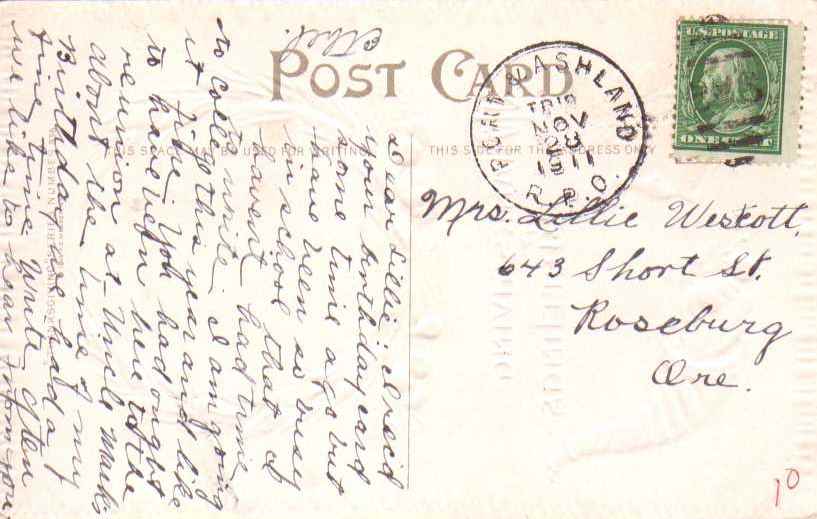 POST CARD
THIS SPACE MAY BE USED FOR WRITING
THIS SIDE FOR THE ADDRESS ONLY
U.S. POSTAGE
ONE CENT
ASHLAND
NOV
1911
R.P.O.
Mrs. Lillie Westcott,
643 Short St.
Roseburg
Ore.
Dear Lillie:- I rec'd
your birthday card
some time ago but
have been so busy
in school that I
havent had time
to write. I am going
to college this year and like
it fine. You had ought
to have been here to the
reunion at Uncle Mack's
about the time of my
Birthday. We had a
fine time. Write often
we like to hear from you
Ethel.
10